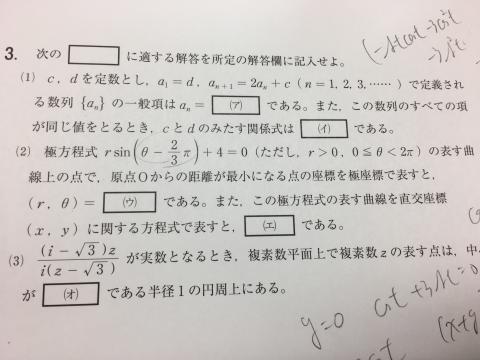 3. 次の に適する解答を所定の解答欄に記入せよ。
(1) c, dを定数とし, a₁=d, aₙ₊₁=2aₙ+c (n=1, 2, 3, ……) で定義され
る数列 {aₙ} の一般項は aₙ= (ア) である。また, この数列のすべての項
が同じ値をとるとき, cとdのみたす関係式は (イ) である。
(2) 極方程式 r sin(θ-2/3π)+4=0 (ただし, r>0, 0≦θ<2π) の表す曲
線上の点で, 原点Oからの距離が最小になる点の座標を極座標で表すと,
(r, θ)= (ウ) である。また, この極方程式の表す曲線を直交座標
(x, y) に関する方程式で表すと, (エ) である。
(3) (i-√3)z / i(z-√3) が実数となるとき, 複素数平面上で複素数zの表す点は, 中心
が (オ) である半径1の円周上にある。
y=0